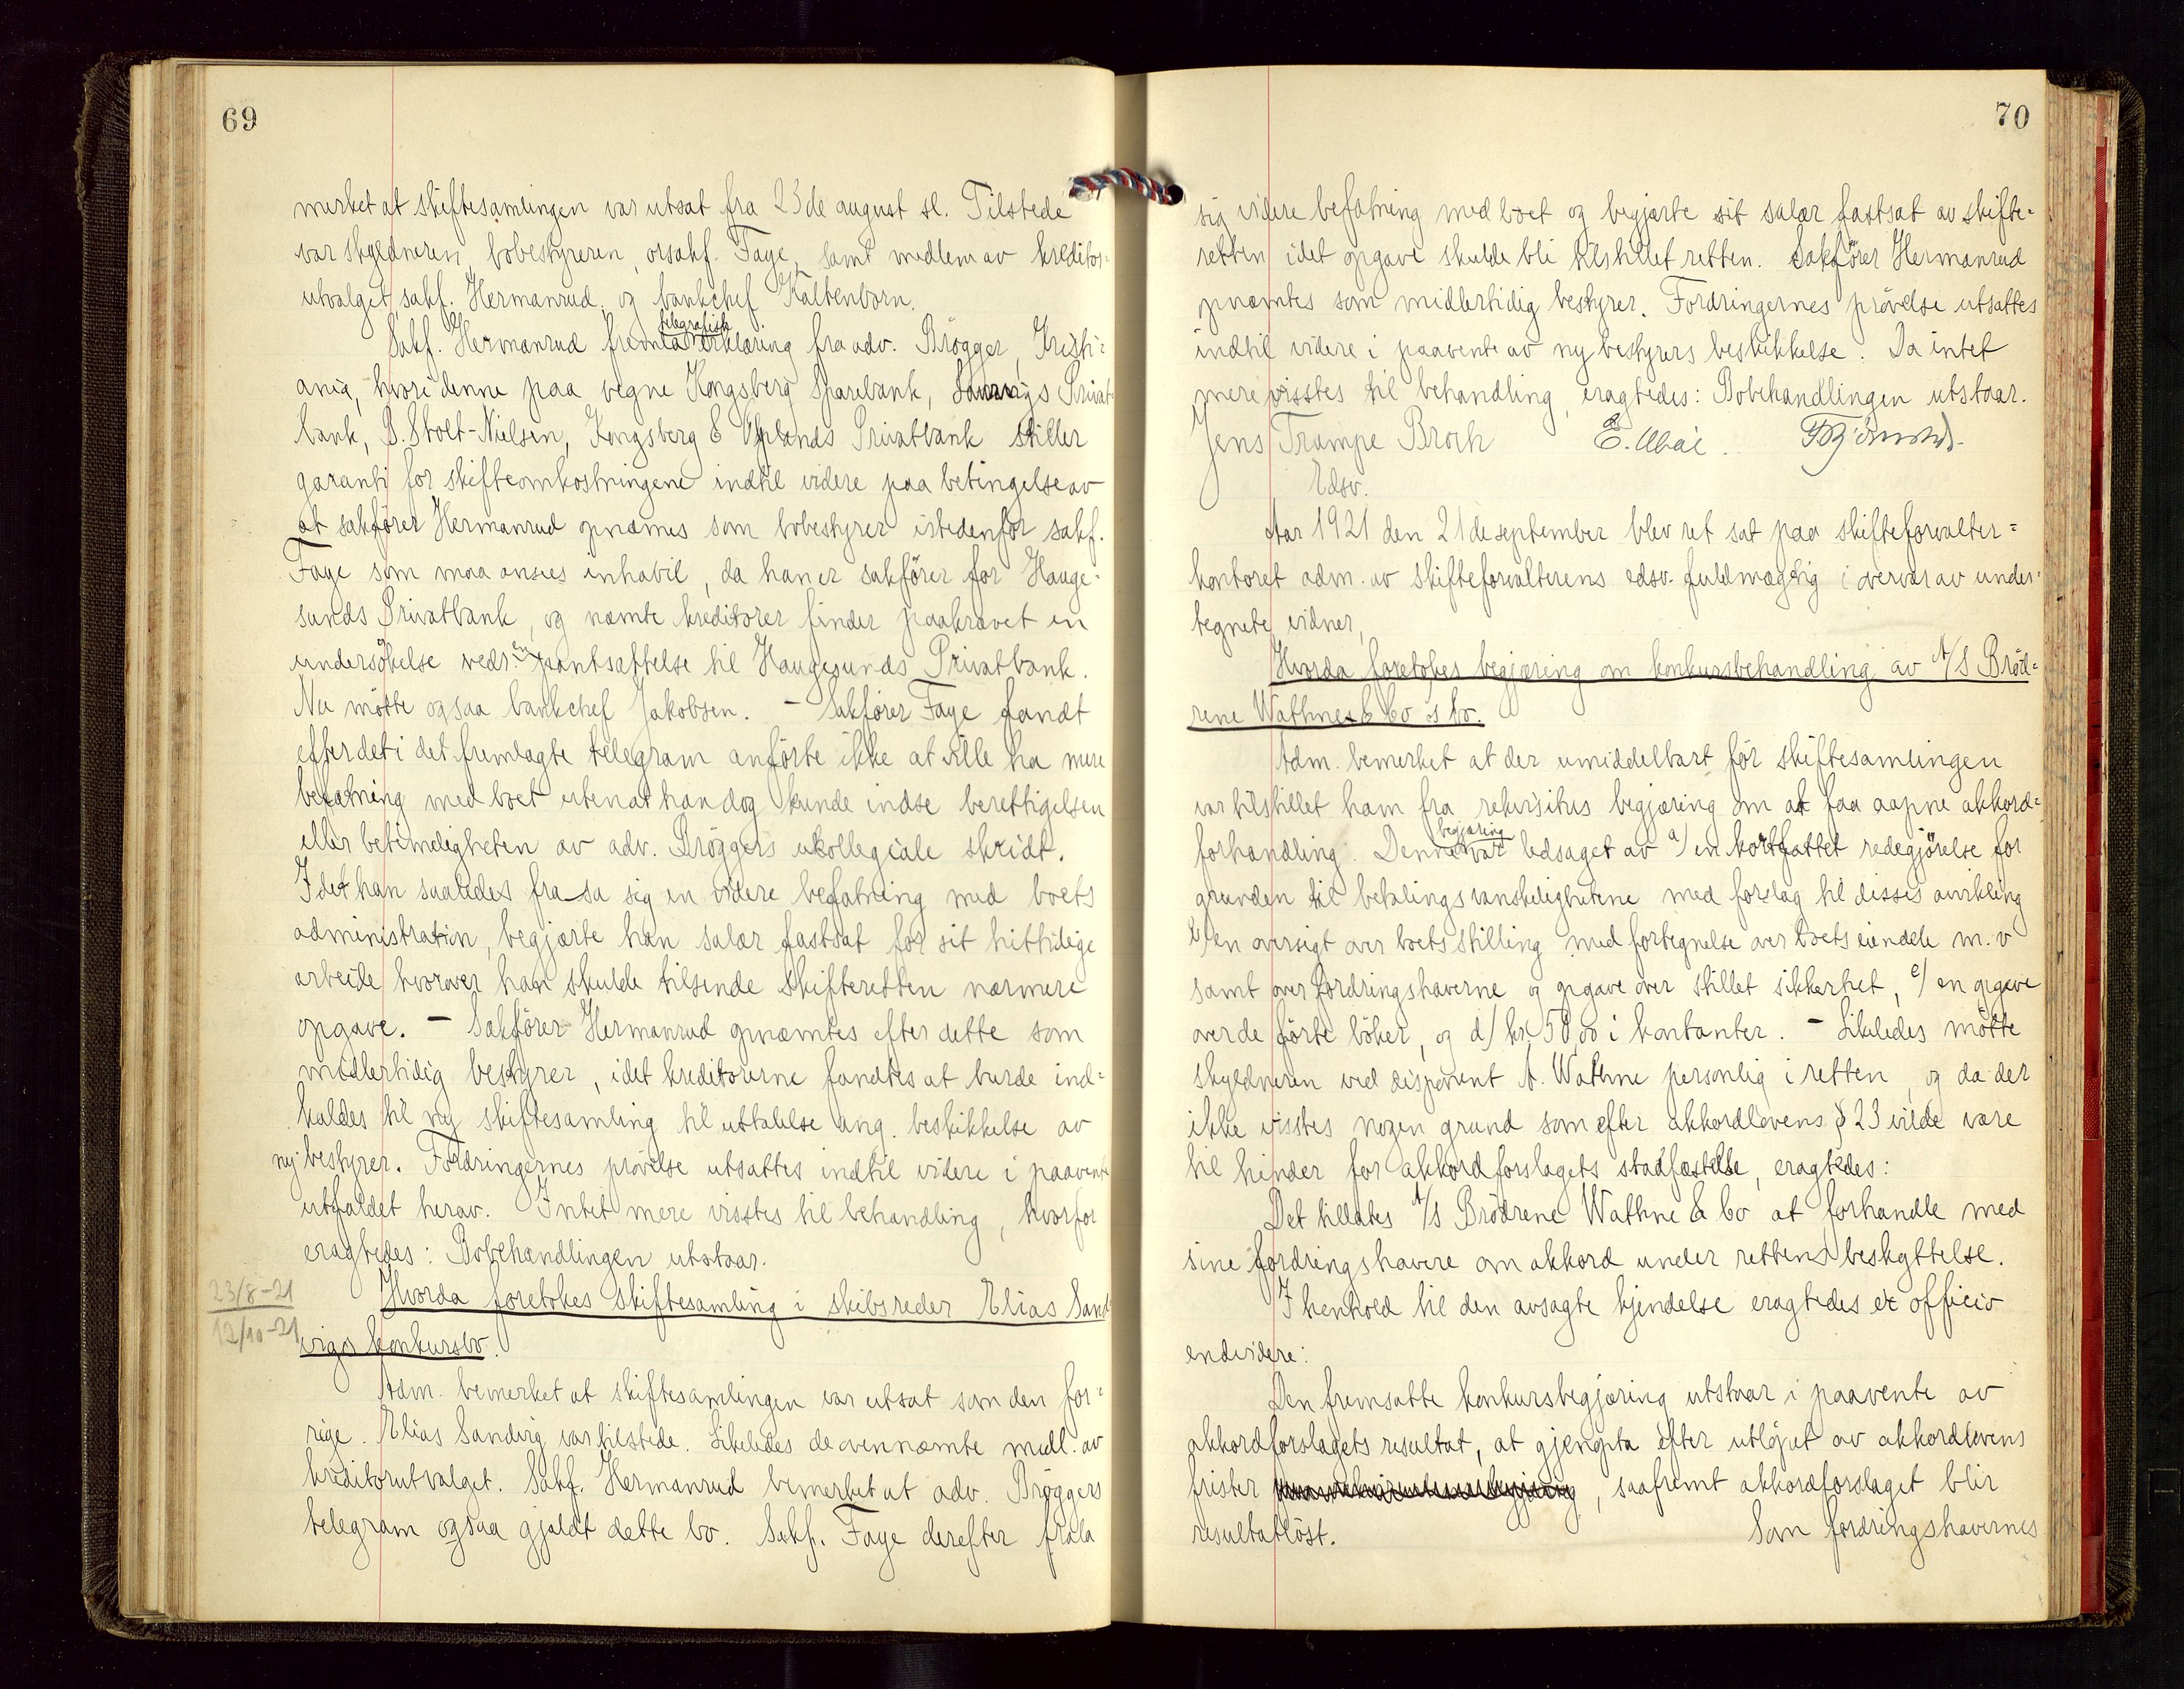 69
merket at skiftesamlingen var utsat fra 23de august sl. Tilstede
var skyldneren, bobestyreren, orsakf. Faye, samt medlem av kreditor-
utvalget, sakf. Hermanrud, og bankchef Kaltenborn.
Sakf. Hermanrud fremla telegrafisk erklæring fra adv. Brøgger, Kristi-
ania, hvori denne paa vegne Kongsberg Sparebank, Privat-
bank, B. Stolt-Nielsen, Kongsberg & Oplands Privatbank stiller
garanti for skifteomkostningene indtil videre paa betingelse av
at sakfører Hermanrud opnævnes som bobestyrer istedenfor sakf.
Faye som maa ansees inhabil, da han er sakfører for Hauge-
sunds Privatbank, og nævnte kreditorer finder paakrævet en
undersökelse vedr. en pantsættelse til Haugesunds Privatbank.
Nu mötte ogsaa bankchef Jakobsen. – Sakfører Faye fandt
efter det i det fremlagte telegram anförte ikke at ville ha mere
befatning med boet uten at han dog kunde indse berettigelsen
eller betimeligheten av adv. Brøggers ukollegiale skridt.
Idet han saaledes fra sa sig en videre befatning med boets
administration, begjærte han salær fastsat for sit hittidige
arbeide hvorover han skulde tilsende skifteretten nærmere
opgave. – Sakfører Hermanrud opnævntes efter dette som
midlertidig bestyrer, idet kreditorerne fandtes at burde ind-
kaldes til ny skiftesamling til uttalelse ang. beskikkelse av
ny bestyrer. Fordringernes prövelse utsattes indtil videre i paavente
utfaldet herav. Intet mere visstes til behandling, hvorfor
eragtedes: Bobehandlingen utstaar.
23/8-21
12/10-21
Hvorda foretokes skiftesamling i skibsreder Elias Sand-
vigs konkursbo.
Adm. bemerket at skiftesamlingen var utsat som den for-
rige. Elias Sandvig var tilstede. Likeledes de ovennævnte medl. av
kreditorutvalget. Sakf. Hermanrud bemerket at adv. Brøggers
telegram ogsaa gjaldt dette bo. Sakf. Faye derefter frala
70
sig videre befatning med boet og begjærte sit salær fastsat av skifte-
retten idet opgave skulde bli tilstillet retten. Sakförer Hermanrud
opnævntes som midlertidig bestyrer. Fordringernes prövelse utsattes
indtil videre i paavente av ny bestyrers beskikkelse. Da intet
mere visstes til behandling, eragtedes: Bobehandlingen utstaar.
Jens Trampe Broch E.
Edsv.
Aar 1921 den 21de september blev ret sat paa skifteforvalter-
kontoret adm. av skifteforvalterens edsv. fuldmægtig i overvær av under-
tegnete vidner,
Hvorda foretokes begjæring om konkursbehandling av A/S Bröd-
rene Wathne & Co's bo.
Adm. bemerket at der umiddelbart för skiftesamlingen
var tilstillet ham fra rekvisitus begjæring om at faa aapne akkord-
forhandling. Denne begjæring var ledsaget av a/ en kortfattet redegjörelse for
grunden til betalingsvanskelighetene med forslag til disses avvikling
b/ en oversigt over boets stilling med fortegnelse over boets eiendele m.v
samt over fordringshaverne og opgave over stillet sikkerhet, c/ en opgave
over de förte böker, og d/ kr. 50.00 i kontanter. – Likeledes mötte
skyldneren ved disponent A. Wathne personlig i retten, og da der
ikke visstes nogen grund som efter akkordlovens § 23 vilde være
til hinder for akkordforslagets stadfæstelse, eragtedes:
Det tillates A/S Brödrene Wathne & Co at forhandle med
sine fordringshavere om akkord under rettens beskyttelse.
I henhold til den avsagte kjendelse eragtedes ex officio
endvidere:
Den fremsatte konkursbegjæring utstaar i paavente av
akkordforslagets resultat, at gjenopta efter utlöpet av akkordlovens
frister, saafremt akkordforslaget blir
resultatlöst. Som fordringshavernes